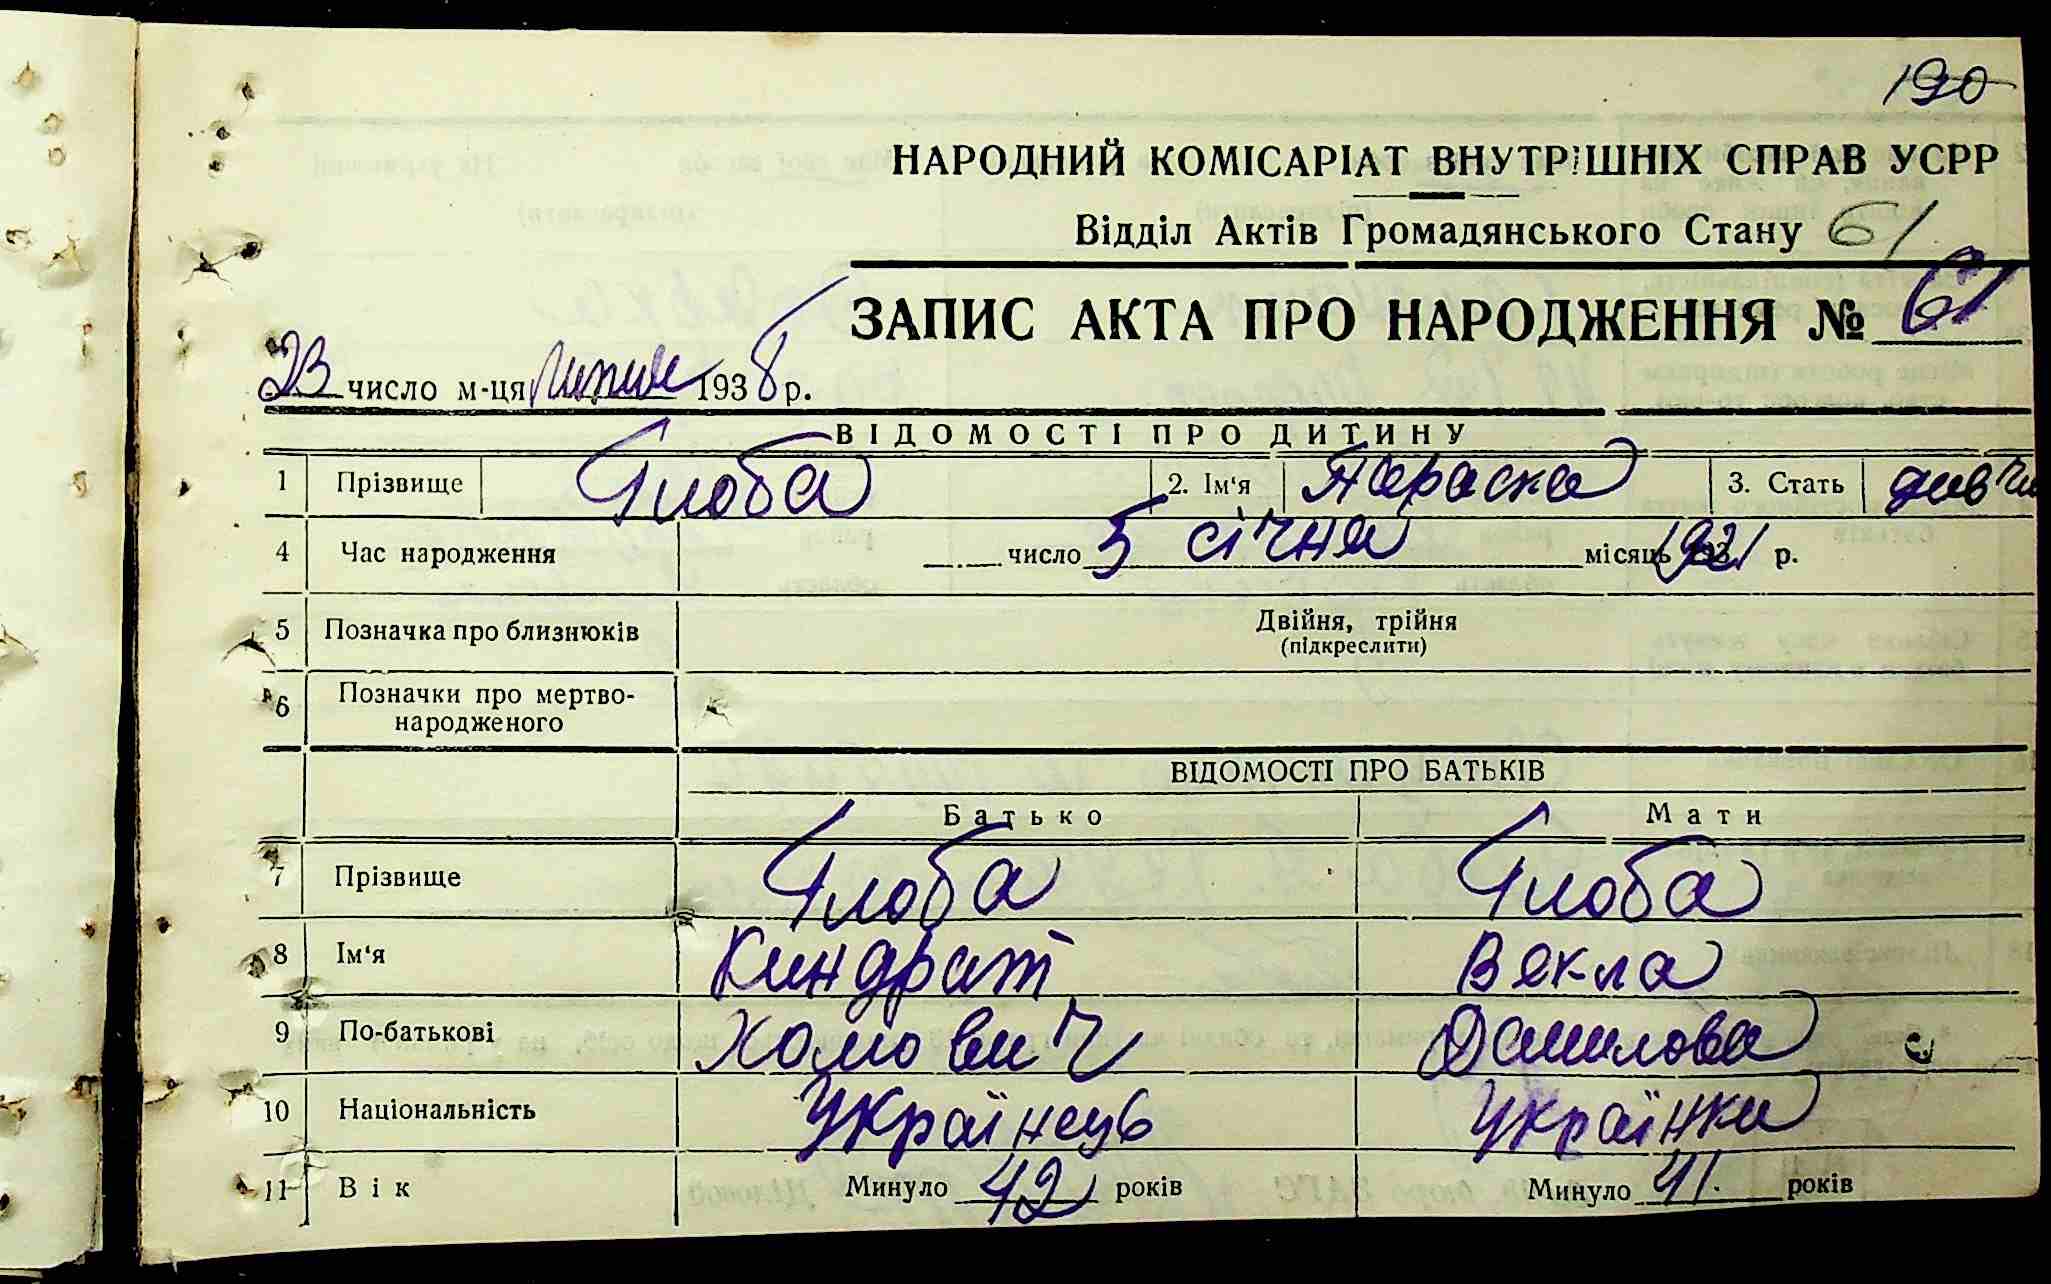 190
НАРОДНИЙ КОМІСАРІАТ ВНУТРІШНІХ СПРАВ УСРР
Відділ Актів Громадянського Стану 61
ЗАПИС АКТА ПРО НАРОДЖЕННЯ № 61
23 число м-ця липня 1938 р.
ВІДОМОСТІ ПРО ДИТИНУ
1 Прізвище Глоба 2. Ім'я Параска 3. Стать дивчи
4 Час народження число 5 січня місяць 1921 р.
5 Позначка про близнюків Двійня, трійня
(підкреслити)
6 Позначки про мертво-
народженого
ВІДОМОСТІ ПРО БАТЬКІВ
Батько Мати
7 Прізвище Глоба Глоба
8 Ім'я Киндрат Векла
9 По-батькові Хомович Данилова
10 Національність Українець Українка
11 Вік Минуло 42 років Минуло 41. років